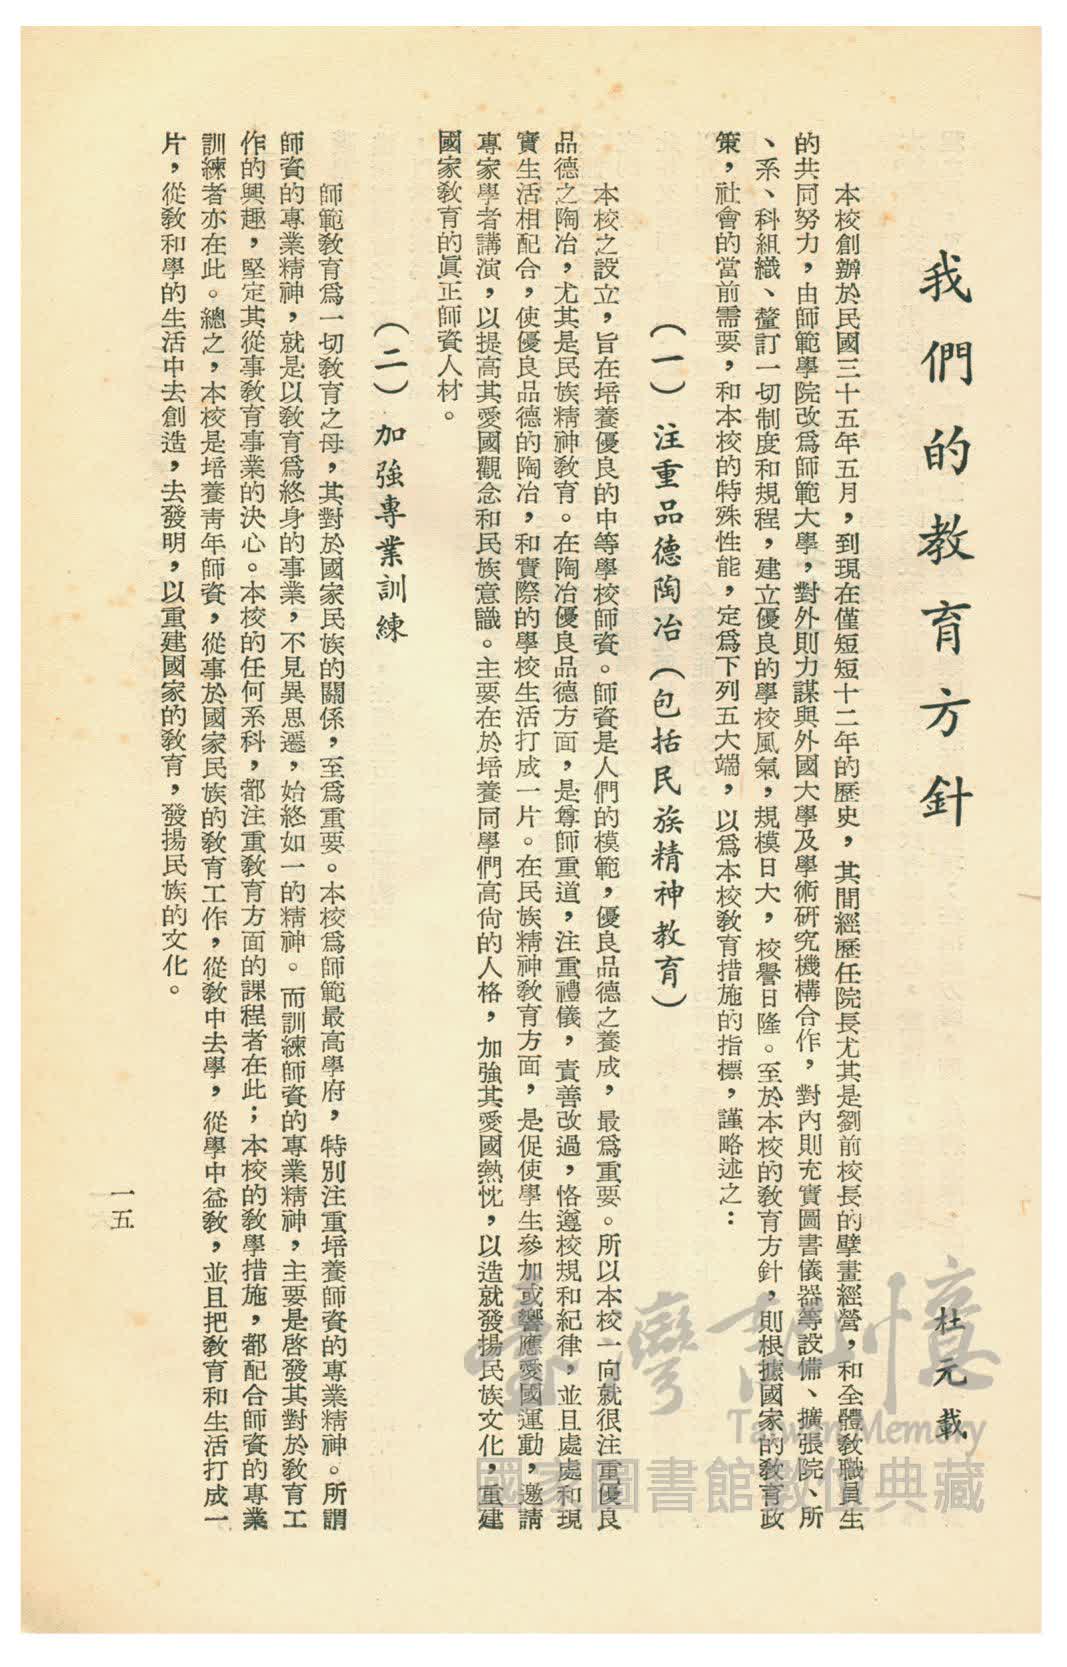 我們的教育方針
杜元載
本校創辦於民國三十五年五月，到現在僅短短十二年的歷史，其間經歷任院長尤其是劉前校長的擘畫經營，和全體教職員生
的共同努力，由師範學院改爲師範大學，對外則力謀與外國大學及學術研究機構合作，對內則充實圖書儀器等設備、擴張院、所
、系、科組織、釐訂一切制度和規程，建立優良的學校風氣，規模日大，校譽日隆。至於本校的敎育方針，則根據國家的敎育政
策，社會的當前需要，和本校的特殊性能，定爲下列五大端，以爲本校敎育措施的指標，謹略述之：
（一）注重品德陶冶（包括民族精神教育）
本校之設立，旨在培養優良的中等學校師資。師資是人們的模範，優良品德之養成，最爲重要。所以本校一向就很注重優良
品德之陶冶，尤其是民族精神敎育。在陶冶優良品德方面，是尊師重道，注重禮儀，責善改過，恪遵校規和紀律，並且處處和現
實生活相配合，使優良品德的陶冶，和實際的學校生活打成一片。在民族精神敎育方面，是促使學生參加或響應愛國運動，邀請
專家學者講演，以提高其愛國觀念和民族意識。主要在於培養同學們高尙的人格，加強其愛國熱忱，以造就發揚民族文化，重建
國家敎育的眞正師資人材。
（二）加強專業訓練
師範敎育爲一切敎育之母，其對於國家民族的關係，至爲重要。本校爲師範最高學府，特別注重培養師資的專業精神。所謂
師資的專業精神，就是以敎育爲終身的事業，不見異思遷，始終如一的精神。而訓練師資的專業精神，主要是啓發其對於敎育工
作的興趣，堅定其從事敎育事業的決心。本校的任何系科，都注重敎育方面的課程者在此；本校的敎學措施，都配合師資的專業
訓練者亦在此。總之，本校是培養靑年師資，從事於國家民族的敎育工作，從敎中去學，從學中益敎，並且把敎育和生活打成一
片，從敎和學的生活中去創造，去發明，以重建國家的敎育，發揚民族的文化。
一五
臺灣記憶
Taiwan Memory
國家圖書館數位典藏